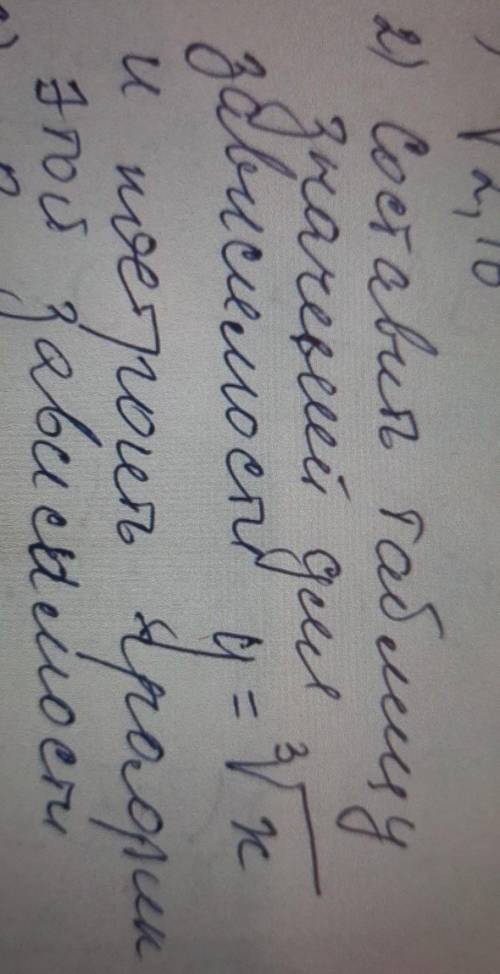 √2,10
2) Составить таблицу
значений для
зависемости y = ³√x
и построить график
этой зависимости